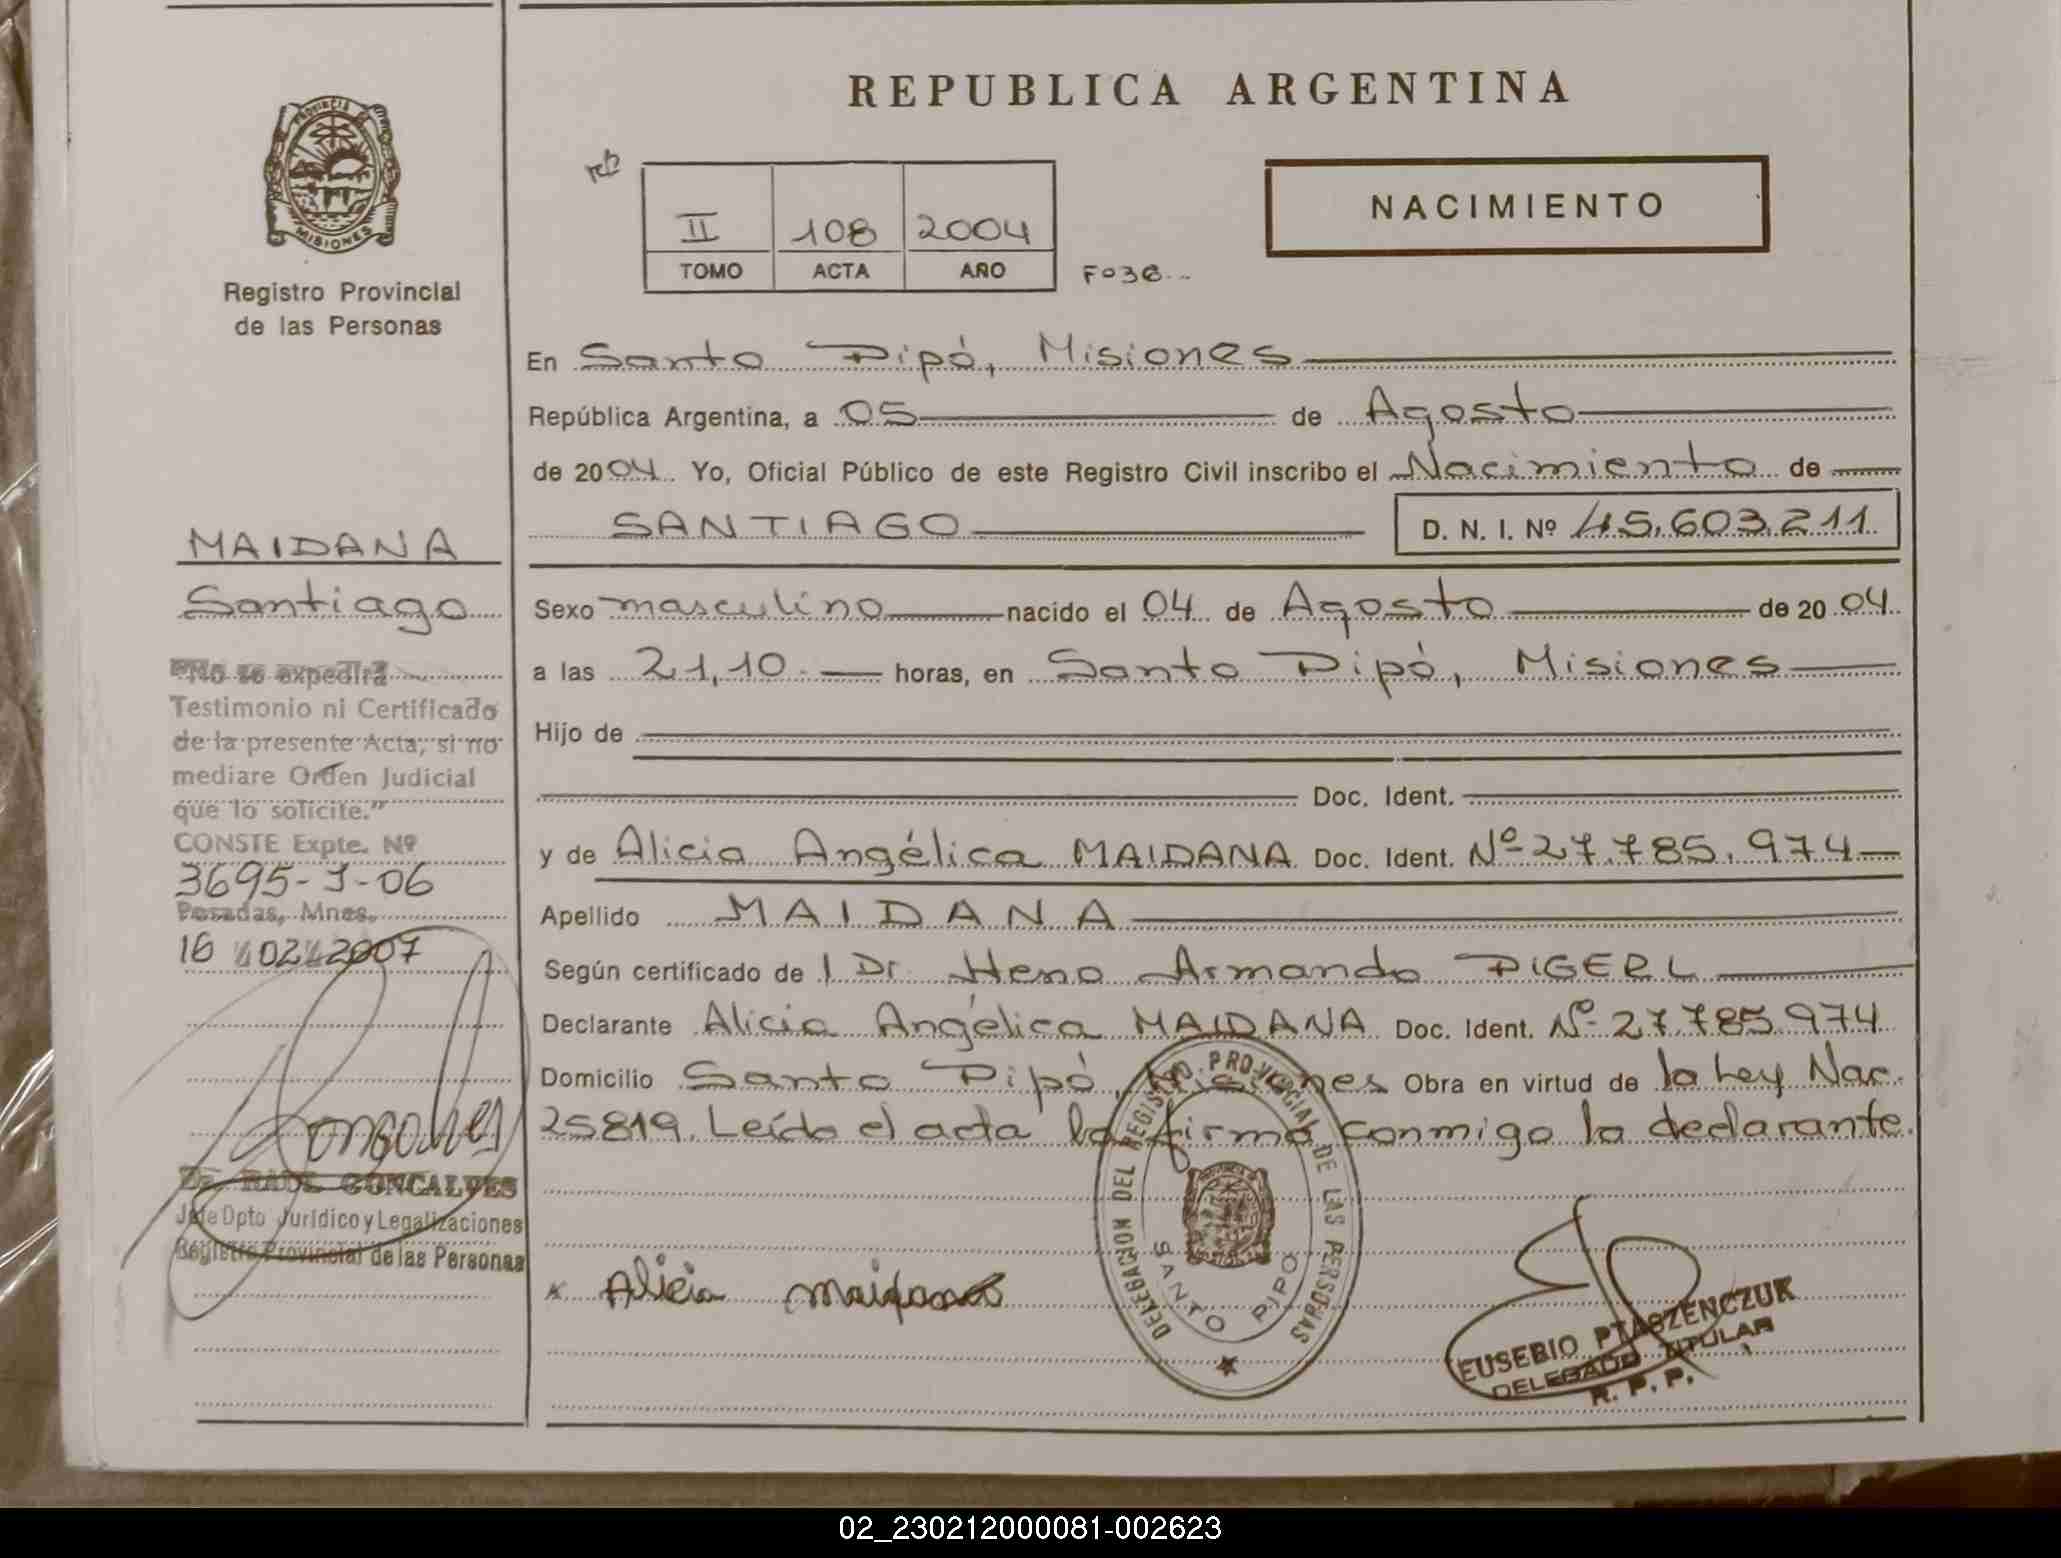 REPUBLICA ARGENTINA
PROVINCIA
MISIONES
Registro Provincial
de las Personas
II 108 2004
TOMO ACTA AÑO
NACIMIENTO
En Santo Pipó, Misiones
República Argentina, a 05 de Agosto
de 2004 Yo, Oficial Público de este Registro Civil inscribo el Nacimiento de
SANTIAGO D. N. I. Nº 45.603.211
MAIDANA
Santiago
"No se expedirá
Testimonio ni Certificado
de la presente Acta, si no
mediare Orden Judicial
que lo solicite."
CONSTE Expte. Nº
3695-J-06
Posadas, Mnes.
16 02 2007
Goncalves
Dr. RAUL GONCALVES
Jefe Dpto Jurídico y Legalizaciones
Registro Provincial de las Personas
Sexo masculino nacido el 04 de Agosto de 2004
a las 21,10 horas, en Santo Pipó, Misiones
Hijo de
Doc. Ident.
y de Alicia Angélica MAIDANA Doc. Ident. Nº 27.785.974
Apellido MAIDANA
Según certificado de l Dr. Armando PIGERL
Declarante Alicia Angélica MAIDANA Doc. Ident. Nº 27.785.974
Domicilio Santo Pipó, Misiones Obra en virtud de la Ley Nac.
25819. Leído el acta la firma conmigo la declarante.
DELEGACION DEL REGISTRO PROVINCIAL DE LAS PERSONAS
SANTO PIPO
x Alicia Maidana
EUSEBIO PTASZENCZUK
DELEGADO TITULAR
R. P. P.
02_230212000081-002623